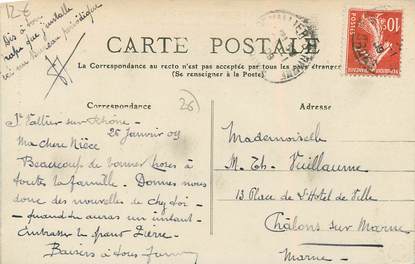 12€
Dis à ton
papa que j'installe
ici un Bureau périodique
CARTE POSTALE
La Correspondance au recto n'est pas acceptée par tous les pays étrangers
(Se renseigner à la Poste)
Correspondance
26
St Vallier sur Rhône
26 Janvier 09
Ma chère Nièce
Beaucoup de bonnes choses à
toute la famille. Donnes nous
donc des nouvelles de chez toi
quand tu auras un instant
Embrasser le grand Zière.
Baisers à tous
Adresse
Mademoiselle
M. Th. Vuillaume
13 Place de l'Hotel de Ville
Châlons sur Marne
Marne
10